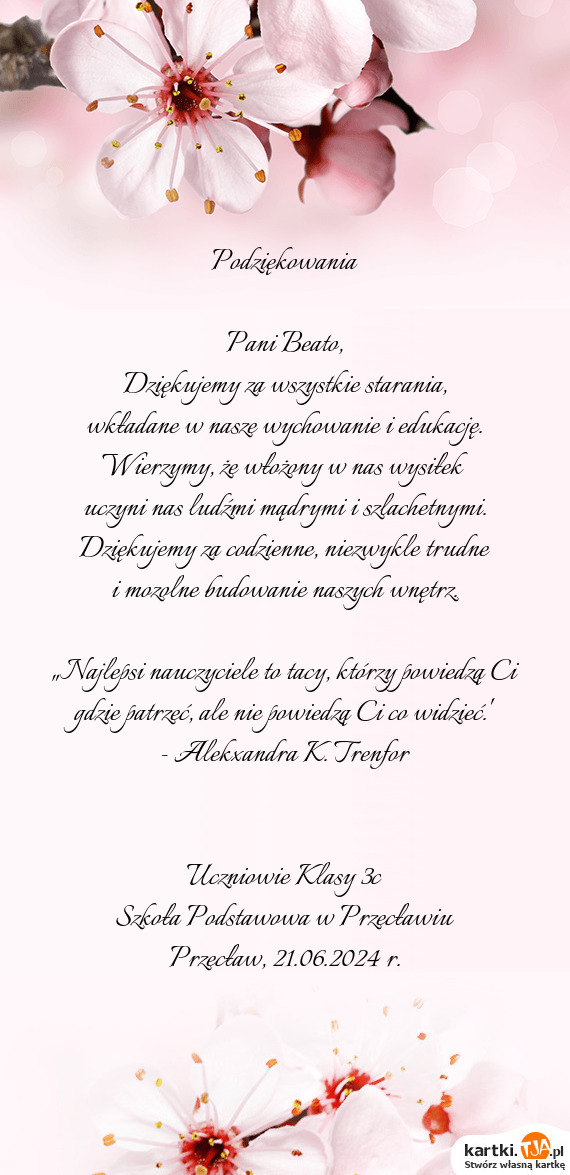 Podziękowania
Pani Beato,
Dziękujemy za wszystkie starania,
wkładane w nasze wychowanie i edukację.
Wierzymy, że włożony w nas wysiłek
uczyni nas ludźmi mądrymi i szlachetnymi.
Dziękujemy za codzienne, niezwykle trudne
i mozolne budowanie naszych wnętrz.
,,Najlepsi nauczyciele to tacy, którzy powiedzą Ci
gdzie patrzeć, ale nie powiedzą Ci co widzieć.'
- Alekxandra K. Trenfor
Uczniowie Klasy 3c
Szkoła Podstawowa w Przecławiu
Przecław, 21.06.2024 r.
kartki.TJA.pl
Stwórz własną kartkę